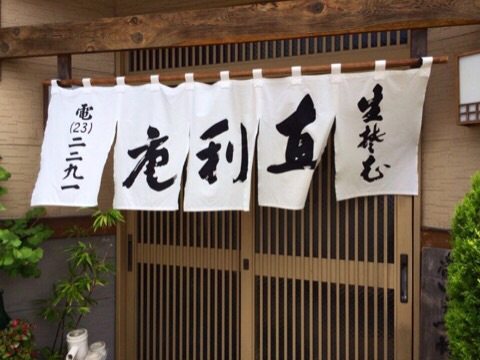 生そば
直利庵
電(23)二二九一